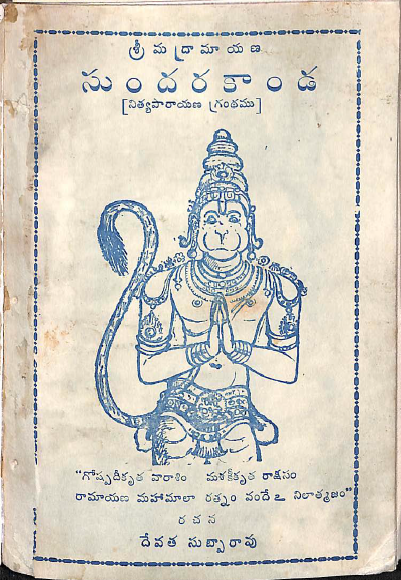 శ్రీ మ ద్రా మా య ణ
సు ం ద ర కా ం డ
[నిత్యపారాయణ గ్రంథము]
"గోష్పదీకృత వారాశిం మశకీకృత రాక్షసం
రామాయణ మహామాలా రత్నం వందే ఽ నిలాత్మజం"
ర చ న
దేవత సుబ్బారావు